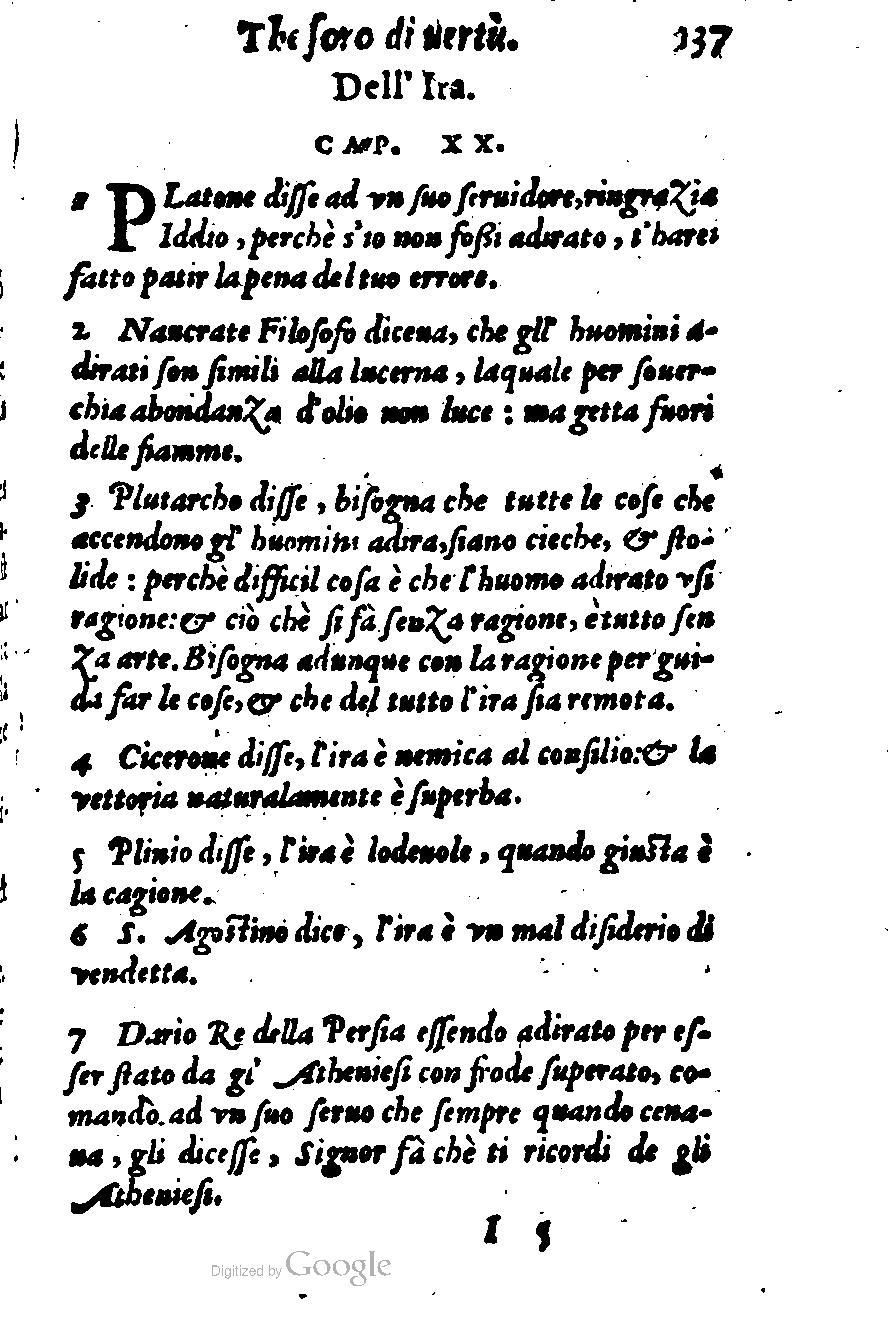 Thesoro di uertù. 137
Dell' Ira.
CAP. XX.
1 PLatone disse ad vn suo seruidore, ringrazia
Iddio, perchè s'io non fossi adirato, t'harei
fatto patir la pena del tuo errore.
2 Naucrate Filosofo diceua, che gl' huomini a-
dirati son simili alla lucerna, laquale per souer-
chia abondanza d'olio non luce : ma getta fuori
delle fiamme.
3 Plutarcho disse, bisogna che tutte le cose che
accendono gl' huomini adira, siano cieche, & sto-
lide : perchè difficil cosa è che l'huomo adirato vsi
ragione: & ciò chè si fà senza ragione, è tutto sen
za arte. Bisogna adunque con la ragione per gui-
da far le cose, & che del tutto l'ira sia remota.
4 Cicerone disse, l'ira è nemica al consilio: & la
vettoria naturalamente è superba.
5 Plinio disse, l'ira è lodeuole, quando giusta è
la cagione.
6 S. Agostino dice, l'ira è vn mal disiderio di
vendetta.
7 Dario Re della Persia essendo adirato per es-
ser stato da gl' Atheniesi con frode superato, co-
mandò. ad vn suo seruo che sempre quando cena-
ua, gli dicesse, Signor fà chè ti ricordi de gli
Atheniesi.
I 5
Digitized by Google